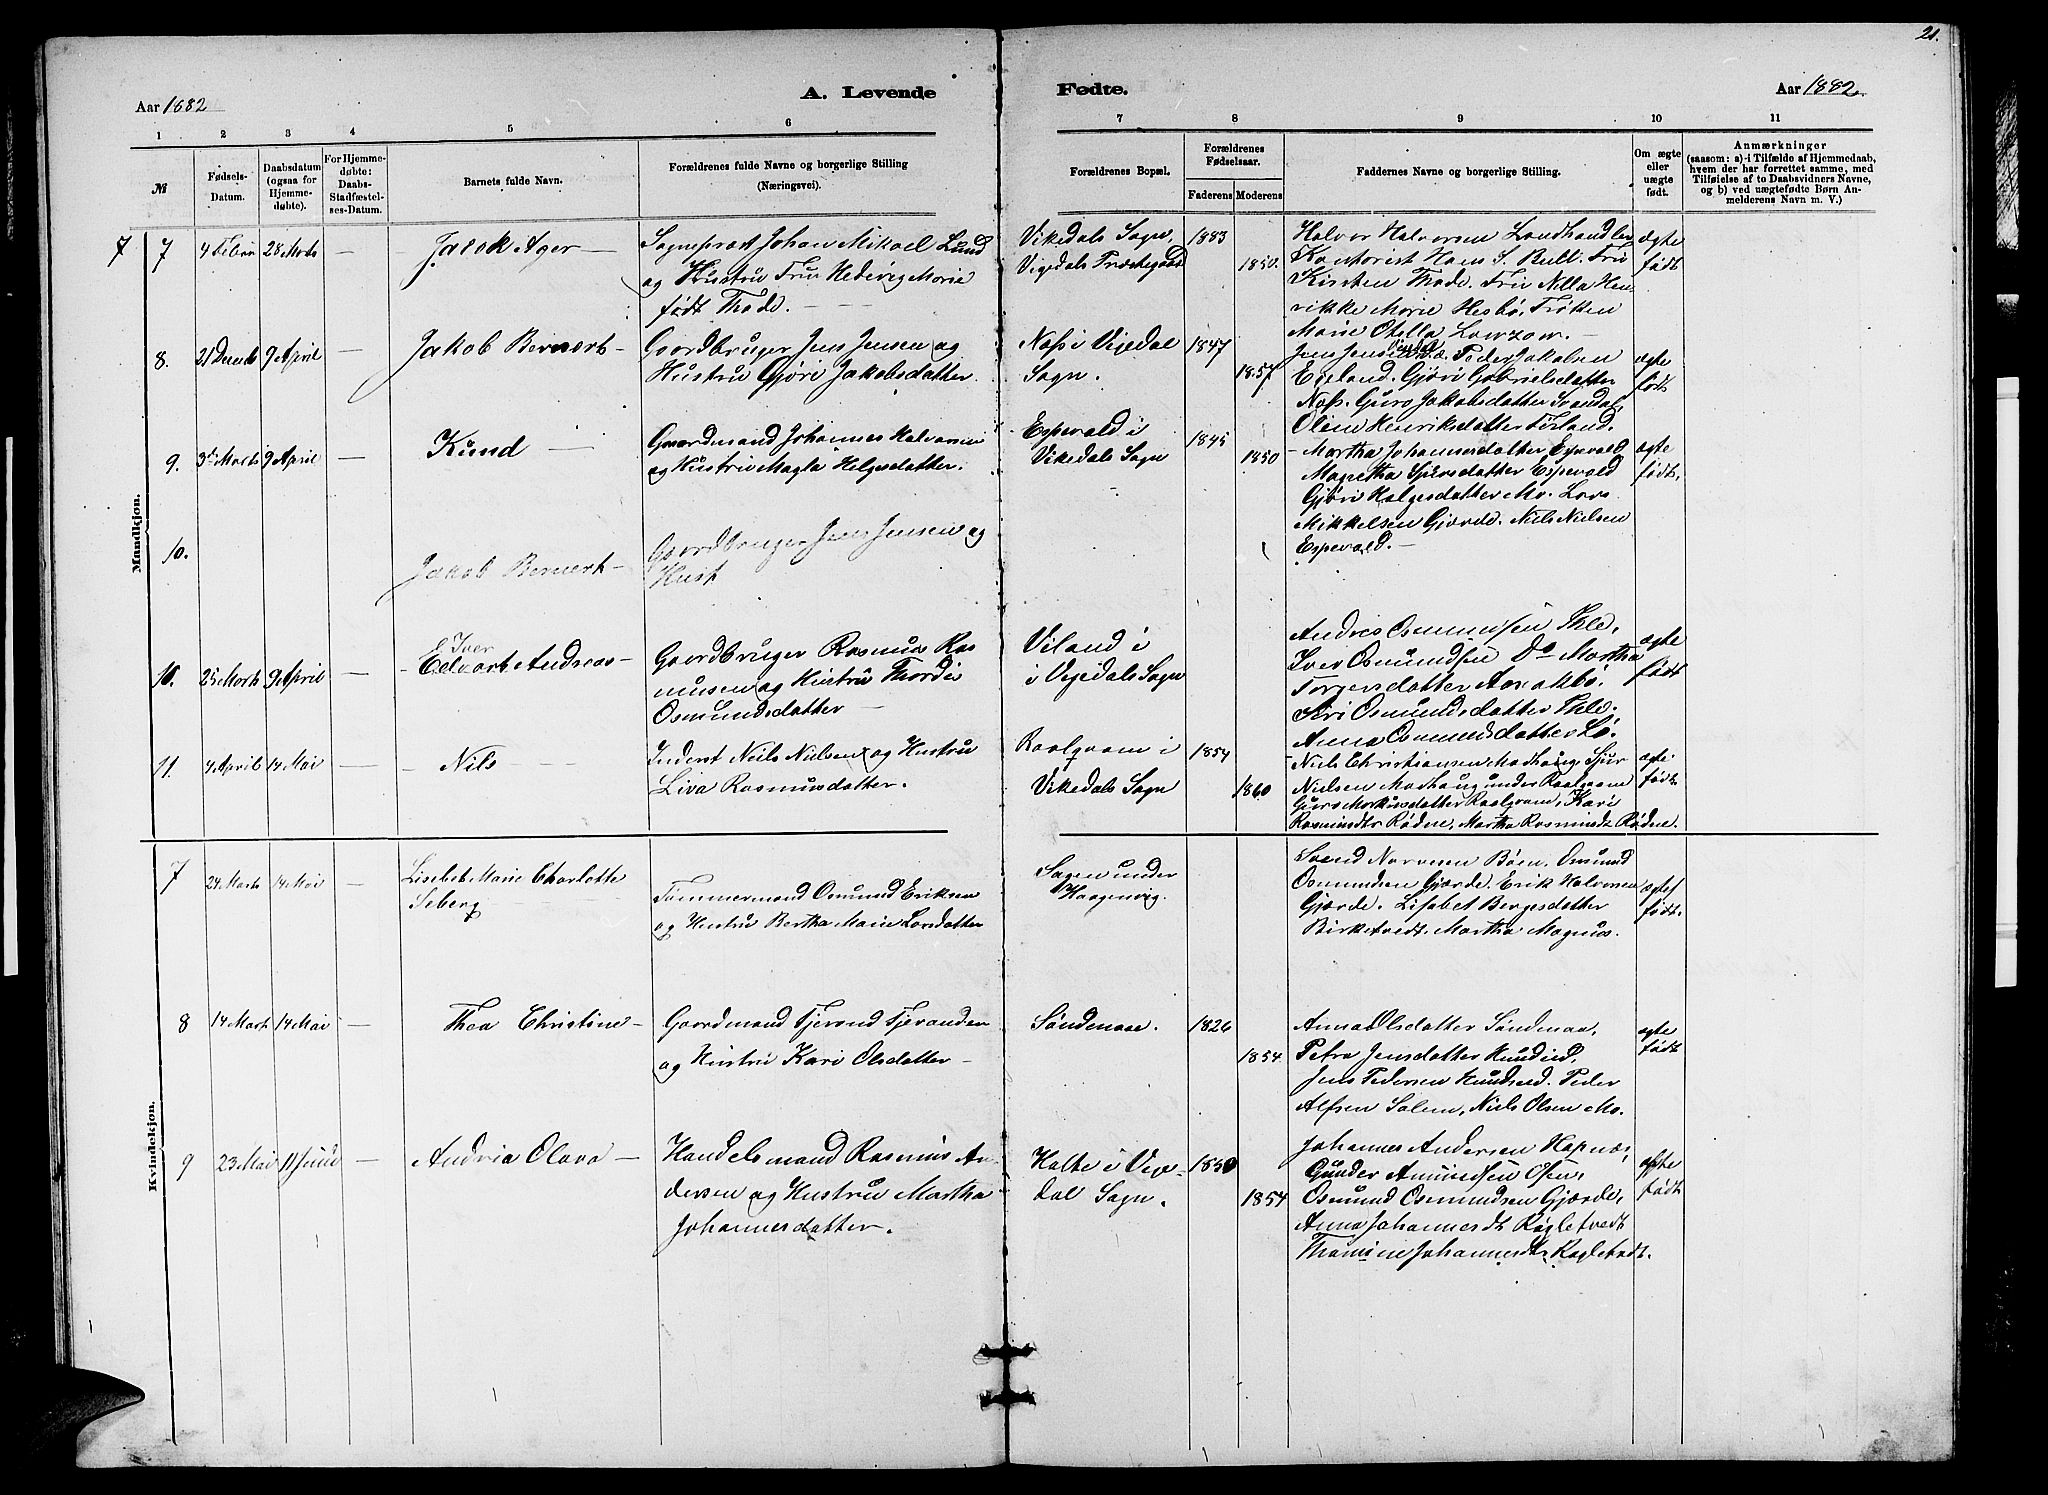 21.
Aar 1882
A. Levende
Fødte.
Aar 1882.
1 2 3 4 5 6
7 8 9 10 11
№
Fødsels-
Datum.
Daabsdatum
(ogsaa for
Hjemme-
døbte).
For Hjemme-
døbte:
Daabs-
Stadfæstel-
ses-Datum.
Barnets fulde Navn.
Forældrenes fulde Navne og borgerlige Stilling
(Næringsvei).
Forældrenes Bopæl.
Forældrenes
Fødselsaar.
Faderens Moderens
Faddernes Navne og borgerlige Stilling.
Om ægte
eller
uægte
født.
Anmærkninger
(saasom: a) i Tilfælde af Hjemmedaab,
hvem der har forrettet samme, med
Tilføielse af to Daabsvidners Navne,
og b) ved uægtefødte Børn An-
melderens Navn m. V.)
Mandkjøn.
7 7 4 Febr 28 Marts — Jacob Ager —
Sogneprest Johan Mikael Lund
og Hustru Fru Hedevig Marie
født Thode. —
Vikedals Sogn,
Vigedals Præstegaard
1883
1850.
Halvor Halvorsen Landhandler
Hans S. Bull. Fru
Kirsten Thode. Fru Nilla Hen-
rikke Marie Hesbø, Frøken
Marie Otella Lowzow. —
ægte
født
8. 21 Decmb 9 April — Jakob Bernert —
Gaardbruger Jens Jensen og
Hustru Gjøri Jakobsdatter.
Næs i Vigedal
Sogn.
1847
1857
Jens Jensen Vindal. Peder Jakobsen
Eieland. Gjøri Gabrielsdatter
Næs. Guro Jakobsdatter Svandal,
Oline Henriksdatter Førland.
ægte
født
9. 3de Marts 9 April — Knud —
Gaardmand Johannes Halvorsen
og Hustru Magla Helgesdatter.
Espevold i
Vikedals Sogn
1845
1850
Martha Johannesdatter Espevold
Magretha Sjursdatter Espevold
Gjøri Helgesdatter Mo. Lars
Mikkelsen Gjerde. Niels Nielsen
Espevold. —
ægte
født.
10. Jakob Bernert —
Gaardbruger Jens Jensen og
Hust
10. 25 Marts 9 April — E. Iver
Edvart Andreas —
Gaardbruger Rasmus Ras
musen og Hustru Thordis
Osmundsdatter —
Viland i
i Vigedals Sogn
Andres Osmundsen Thle,
Iver Osmundsen Do Martha
Torgersdatter
Siri Osmundsdatter Thle.
Anna Osmundsdatter Lø.
ægte
født
11. 4 April 14 Mai — Nils —
Inderst Neils Nielsen og Hustru
Liva Rasmusdatter.
Raalqvam i
Vikedals Sogn
1854
1860
Niels Christiansen Madhaug. Sjur
Nielsen Madhaug under Raalqvam
Guro Markusdatter Raalqvam, Kari
Rasmusdtr Rødne, Martha Rasmusdt Rødne.
ægte
født.
Kvindekjøn.
7 24 Marts 14 Mai — Lisebet Marie Charlotte
Seberg
Tømmermand Osmund Eriksen
og Hustru Bertha Marie Larsdatter
Sagen under
Haagenvig.
Svend Børn. Osmund
Osmundsen Gjærde. Erik Halvorsen
Gjærde. Lisabet Bergesdatter
Birketvedt. Martha Magnus.
ægte
født.
8 14 Mart 14 Mai — Thea Christine —
Gaardmand Tjerand Tjerandsen
og Hustru Kari Olsdatter —
Søndenaae.
1826
1854.
Anna Olsdatter Søndenaa,
Petra Jensdatter
Jens Pedersen Peder
Alfsen Salem, Niels Olsen Mo.
ægte
født
9 23 Mai 11 Juni — Andria Olava —
Handelsmand Rasmus An-
dersen og Hustru Martha
Johannesdatter.
Holte i Vige-
dal Sogn.
1850
1854
Johannes Andersen Hapnæs,
Gunder Amundsen Ølen,
Osmund Osmundsen Gjærde,
Anna Johannesdt Røgletvedt
Thomine Johannesdtr Røgletvedt.
ægte
født